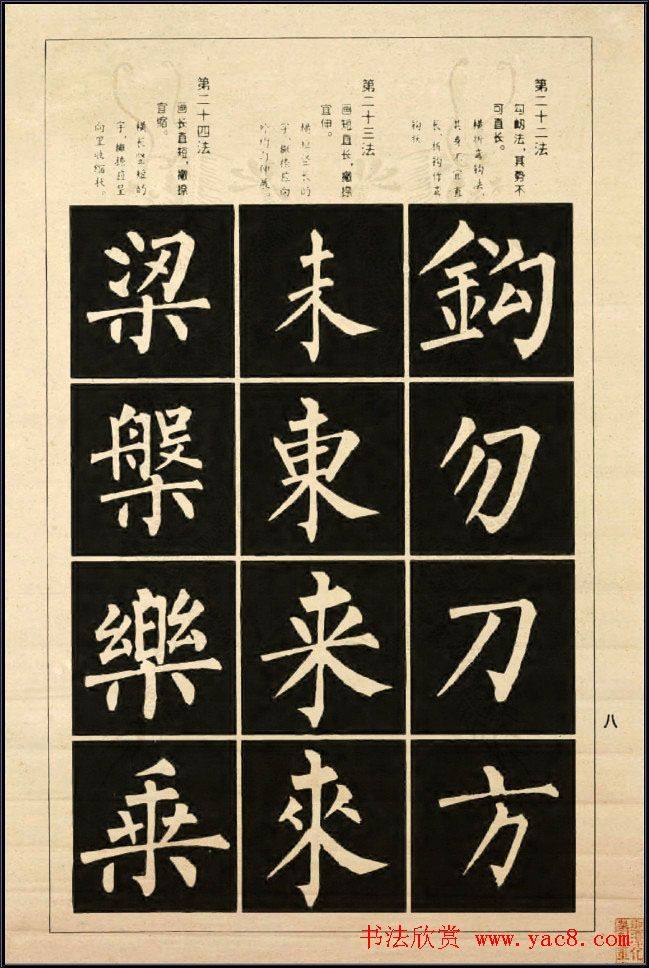 第二十二法
勾努法，其势不
可直长。
横折弯钩法，
其身不宜直
长，折钩作弯
钩状
鈎
勿
刀
方
第二十三法
画短直长，撇捺
宜伸。
横短竖长的
字，撇捺应向
外均匀伸展。
未
東
来
來
第二十四法
画长直短，撇捺
宜缩。
横长竖短的
字，撇捺应呈
向里收缩状。
梁
槃
樂
乗
八
书法欣赏 www.yac8.com